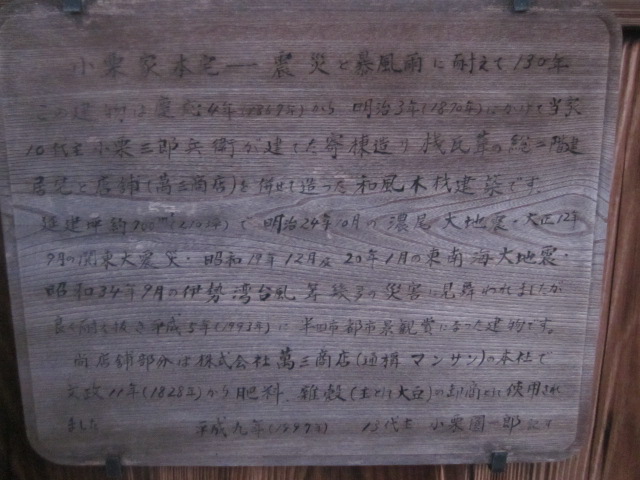 小栗家本宅──震災と暴風雨に耐えて130年
この建物は慶応4年(1869年)から 明治3年(1870年)にかけて当家
10代主小栗三郎兵衛が建てた寄棟造り 桟瓦葺の総二階建
居宅と店舗(萬三商店)を併せて造った 和風木造建築です。
延建坪約 で 明治24年10月の濃尾大地震・大正12年
9月の関東大震災・昭和19年12月及20年1月の東南海大地震・
昭和34年9月の伊勢湾台風等幾多の災害に見舞われましたが
良く耐え抜き平成5年(1993年)に 半田市都市景観賞になった建物です。
尚店舗部分は株式会社萬三商店(通稱 マンサン)の本社で
文政11年(1828年)から肥料、雜穀(主として大豆)の卸商として使用され
ました 平成九年(1997年) 13代主 小栗 一郎